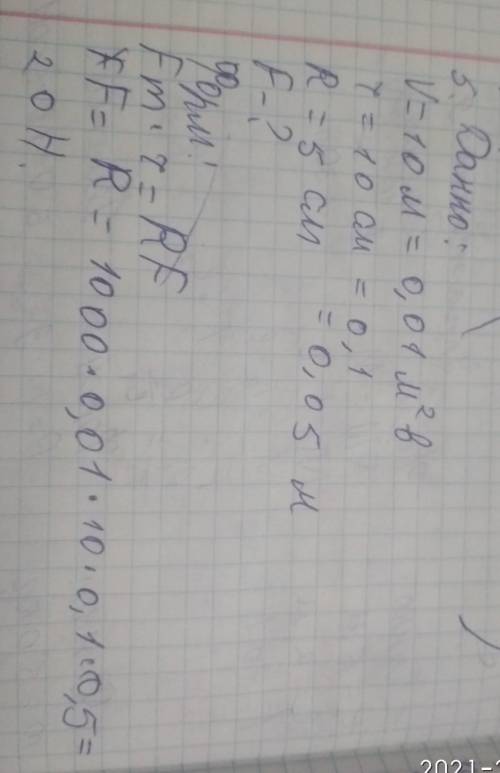 5. Данно:
V = 10 м = 0,01 м² в
r = 10 см = 0,1
R = 5 см = 0,05 м
F - ?
Fт · r = RF
F = R = 1000 · 0,01 · 10 · 0,1 · 0,5 =
20 Н.
2021-